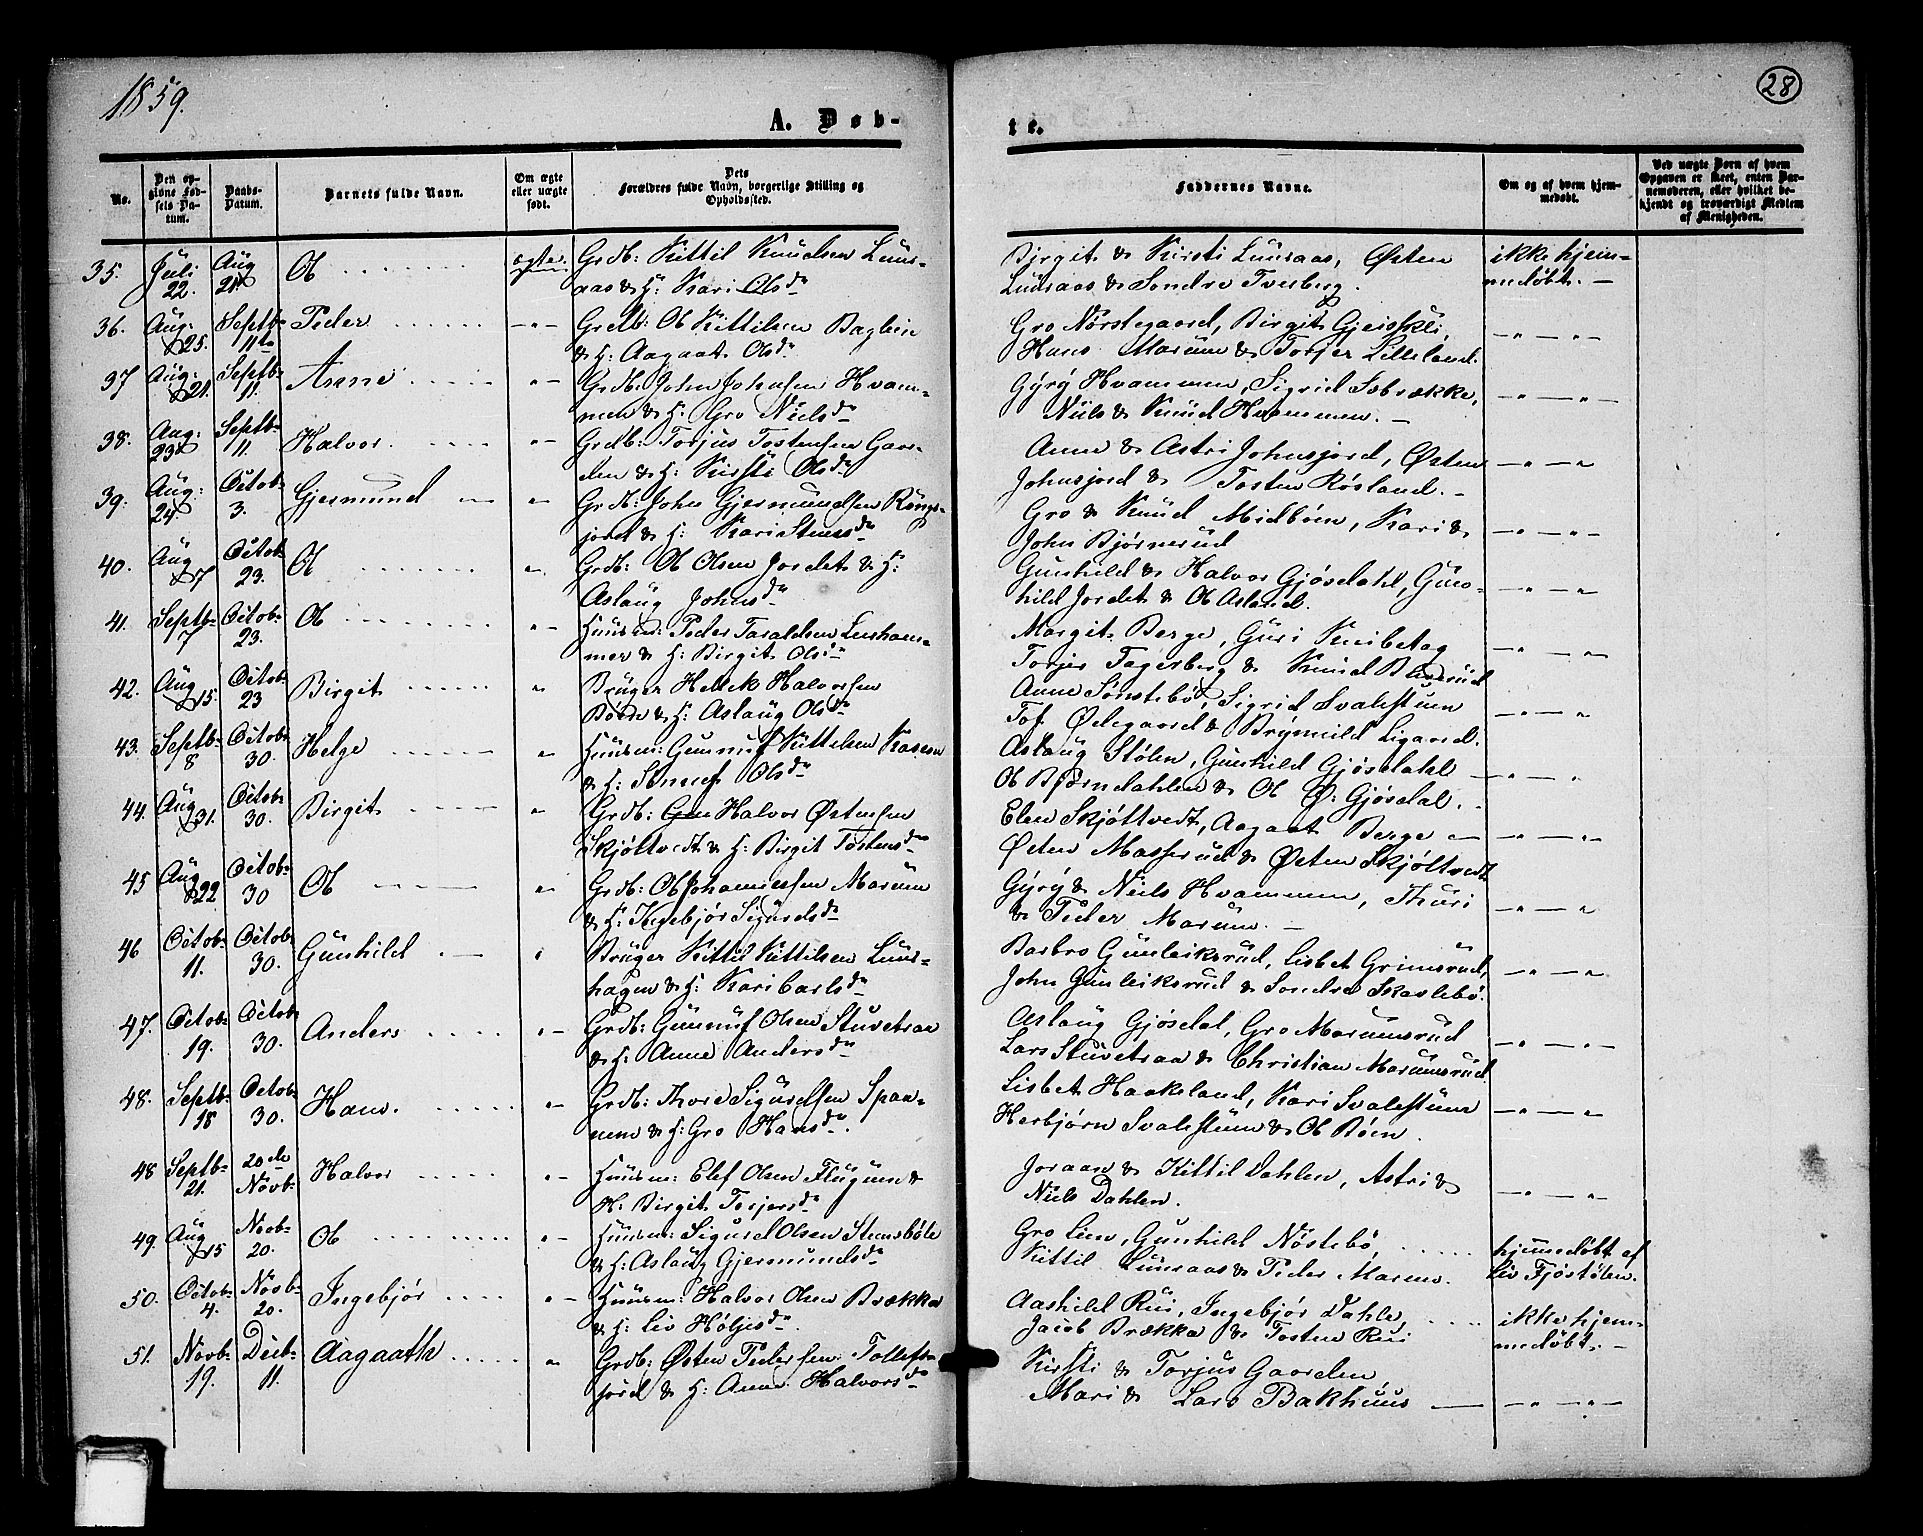 1859.
28
A. Døb-
te.
No.
Den op-
givne Fød-
sels Da-
tum.
Daabs-
Datum.
Barnets fulde Navn.
Om ægte
eller uægte
født.
Dets
Forældres fulde Navn, borgerlige Stilling og
Opholdssted.
Faddernes Navne.
Om og af hvem hjem-
medøbt.
Ved uægte Børn af hvem
Opgaven er skeet, enten Bar-
nemoderen, eller hvilket be-
kjendt og troværdigt Medlem
af Menigheden.
35. Juli 22. Aug 21 Ol ægte Grdb: Kittil Knudsen Luus-
aas & H: Kari Olsdr
Birgit & Kirsti Luusaas, Østen
Luusaas & Sondre Tverberg.
ikke hjem-
medøbt. -
36. Aug: 25. Septb- 11te Peder - " - Grdb: Ol Kittilsen Baglien
& H: Aagaat Olsdr
Gro Nørstegaard, Birgit Gjeisskli,
Hans Marum & Torjer Lilleland.
- " - " -
37 Aug: 21. Septb- 11. Anne " - Grdb: John Johnsen Hvam-
men & H: Gro Nielsdr
Gÿrÿ Hvammen, Sigrid Sobrække,
Niels & Knud Hvammen. -
- " - " -
38. Aug: 23 Septb- 11. Halvor. " - Grdb: Torjus Tostensen Gaar-
den & H: Kirsti Olsdr
Anne & Astri Johnsjord, Østen
Johnsjord & Tosten Røsland. -
- " - "
39. Aug: 24. Octob- 3. Gjermund - " Grdb: John Gjermundsen Rings-
jord & H: Kari Steensdr
Gro & Knud Midbøen, Kari &
John Bjørnerud
- " - " -
40. Aug 7 Octob 23. Ol " Grdb: Ol Olsen Jordet & H:
Aslaug Johnsdr
Gunhild & Halvor Gjøsedahl, Gun-
hild Jordet & Ol Asland.
- " - "
41. Septb- 7 Octob- 23. Ol " - Huusm: Peder Taraldsen Lusham-
mer & H: Birgit Olsdr
Margit Berge, Guri Knibetag
Torjer Fagerberg & Knud
- " - "
42. Aug 15. Octob- 23 Birgit " Brüger Hellek Halvorsen
Bøen & H: Aslaug Olsdr
Anne Sønstebø, Sigrid Svalestuen
Tof Ødegaard & Brÿnild Ligaard.
- " - "
43. Septb- 8 Octob- 30. Helge " Huusm: Gunnuf Kittelsen Kaasen
& H: Olsdr
Aslaug Stølen, Gunhild Gjøsedahl
Ol Bjørndahlen & Ol Ø: Gjøsedal.
- " - "
44. Aug 31. Octob- 30. Birgit " Grdb: Halvor Østensen
Skjøltvedt & H: Birgit Tostensdr
Elen Skjøltvedt, Aagaat Berge
Østen Masserud & Østen Skjøltvedt
- " - "
45 Aug 22 Octob- 30 Ol " Grdb: Ol Johannessen Marum
& H: Ingebjør Sigurdsdr
Gÿrÿ & Niels Hvammen, Thuri
& Peder Marum. -
- " - "
46 Octob- 11. Octob- 30. Gunhild " Brüger Kittil Kittilsen Luus-
hagen & H: Kari Carlsdr
Barbro Gunleiksrud, Lisbet Grimsrud,
John Gunleiksrud & Sondre Skarlebø.
- " - "
47. Octob- 19. Octob- 30. Anders " - Grdb: Gunnuf Olsen Stuvetraa
& H: Anne Andersdr
Aslaug Gjøsdal, Gro Marumsrud
Lars Stuvetraa & Christian Marumsrud.
- " - " -
48. Septb- 18 Octob- 30. Hans. " - Grdb: Thore Sigurdsen Span-
nem & H: Gro Hansdr.
Lisbet Haakeland, Kari Svalestuen
Herbjørn Svalestuen & Ol Bøen.
- " - "
48 Septb- 21. 20de Novb- Halvor " - Huusm: Elef Olsen Flugum &
H. Birgit Torjersdr
Joraan & Kittil Dahlen, Astri &
Niels Dahlen.
- " - "
49. Aug 15 Novb- 20. Ol " - Huusm: Sigurd Olsen Steensbøle
& H: Aslaug Gjermundsdr
Gro Lien, Gunhild Nøstebø,
Kittil Luusaas & Peder Marum.
hjemmedøbt af
Liv Fjøstølen.
50. Octob- 4. Novb- 20. Ingebjør " - Huusm: Halvor Olsen Brække
& H: Liv Høljesdr.
Aashild Rui, Ingebjør Dahle,
Jacob Brække & Tosten Rui
ikke hjem-
medøbt. -
51. Novb- 19. Decb- 11. Aagaath " Grdb: Østen Pedersen Tollefs-
jord & H: Anne Halvorsdr
Kirsti & Torjus Gaarden,
Mari & Lars Bakhuus
- " - " -